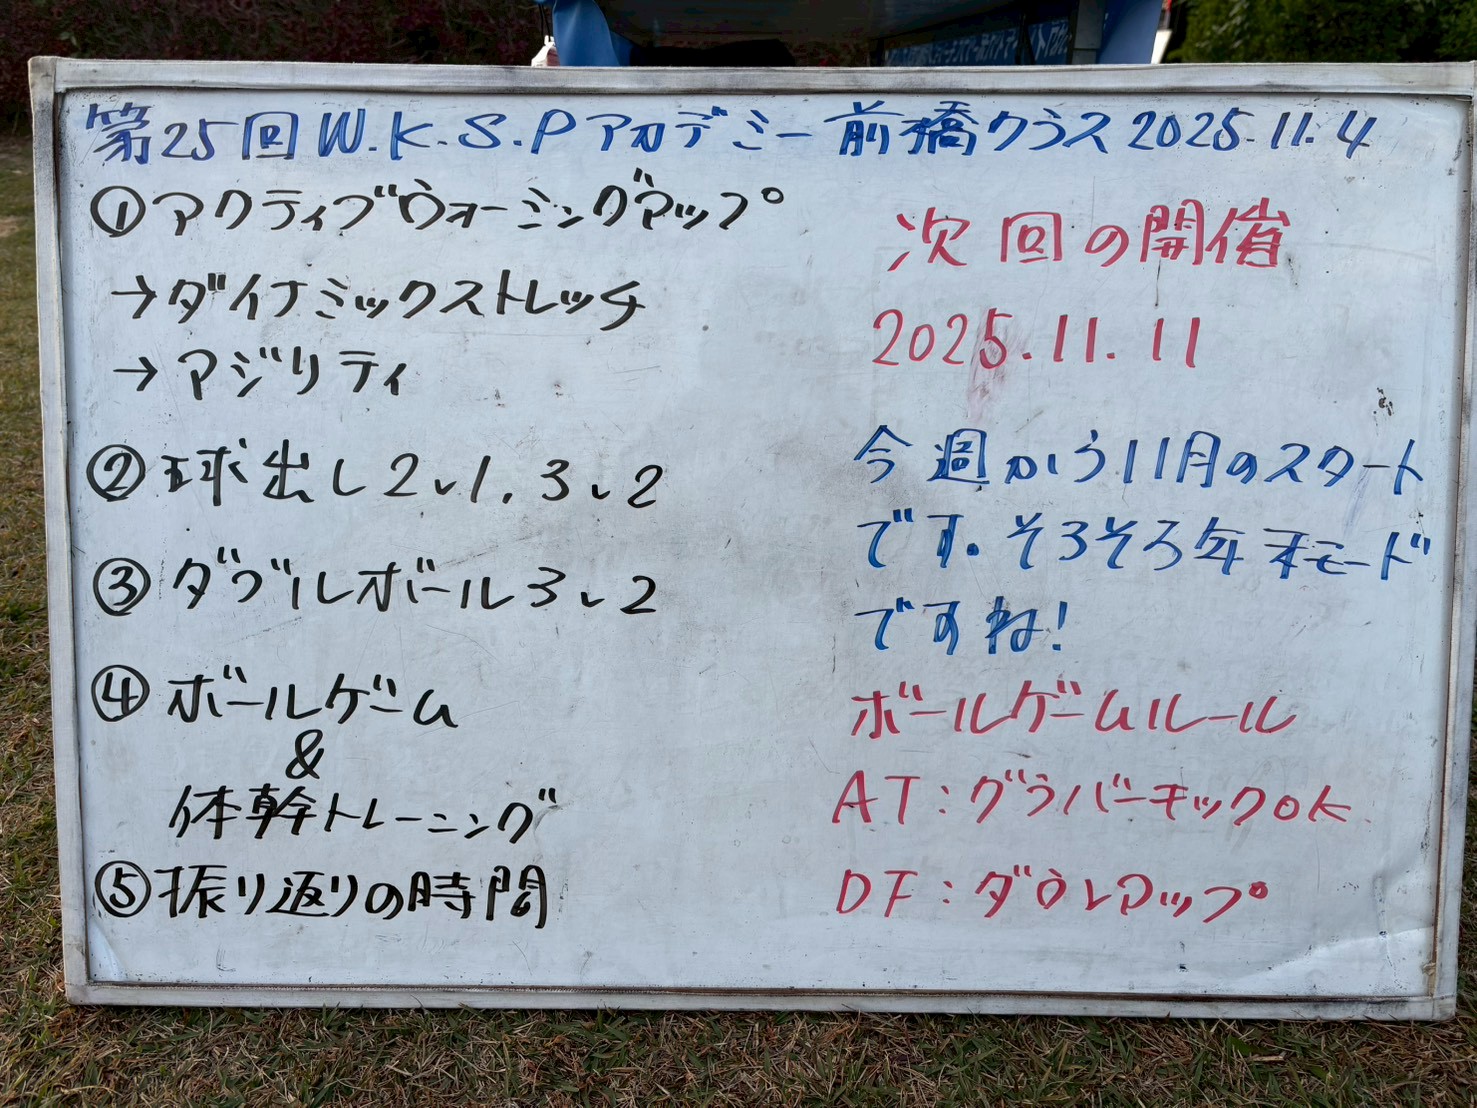 第25回W.K.S.Pアカデミー前橋クラス2025.11.4
①アクティブウォーミングアップ
→ダイナミックストレッチ
→アジリティ
②球出し2v1.3v2
③ダブルボール3v2
④ボールゲーム
&
体幹トレーニング
⑤振り返りの時間
次回の開催
2025.11.11
今週から11月のスタート
です。そろそろ年末モード
ですね!
ボールゲームルール
AT:グラバーキックOK
DF:ダウンアップ